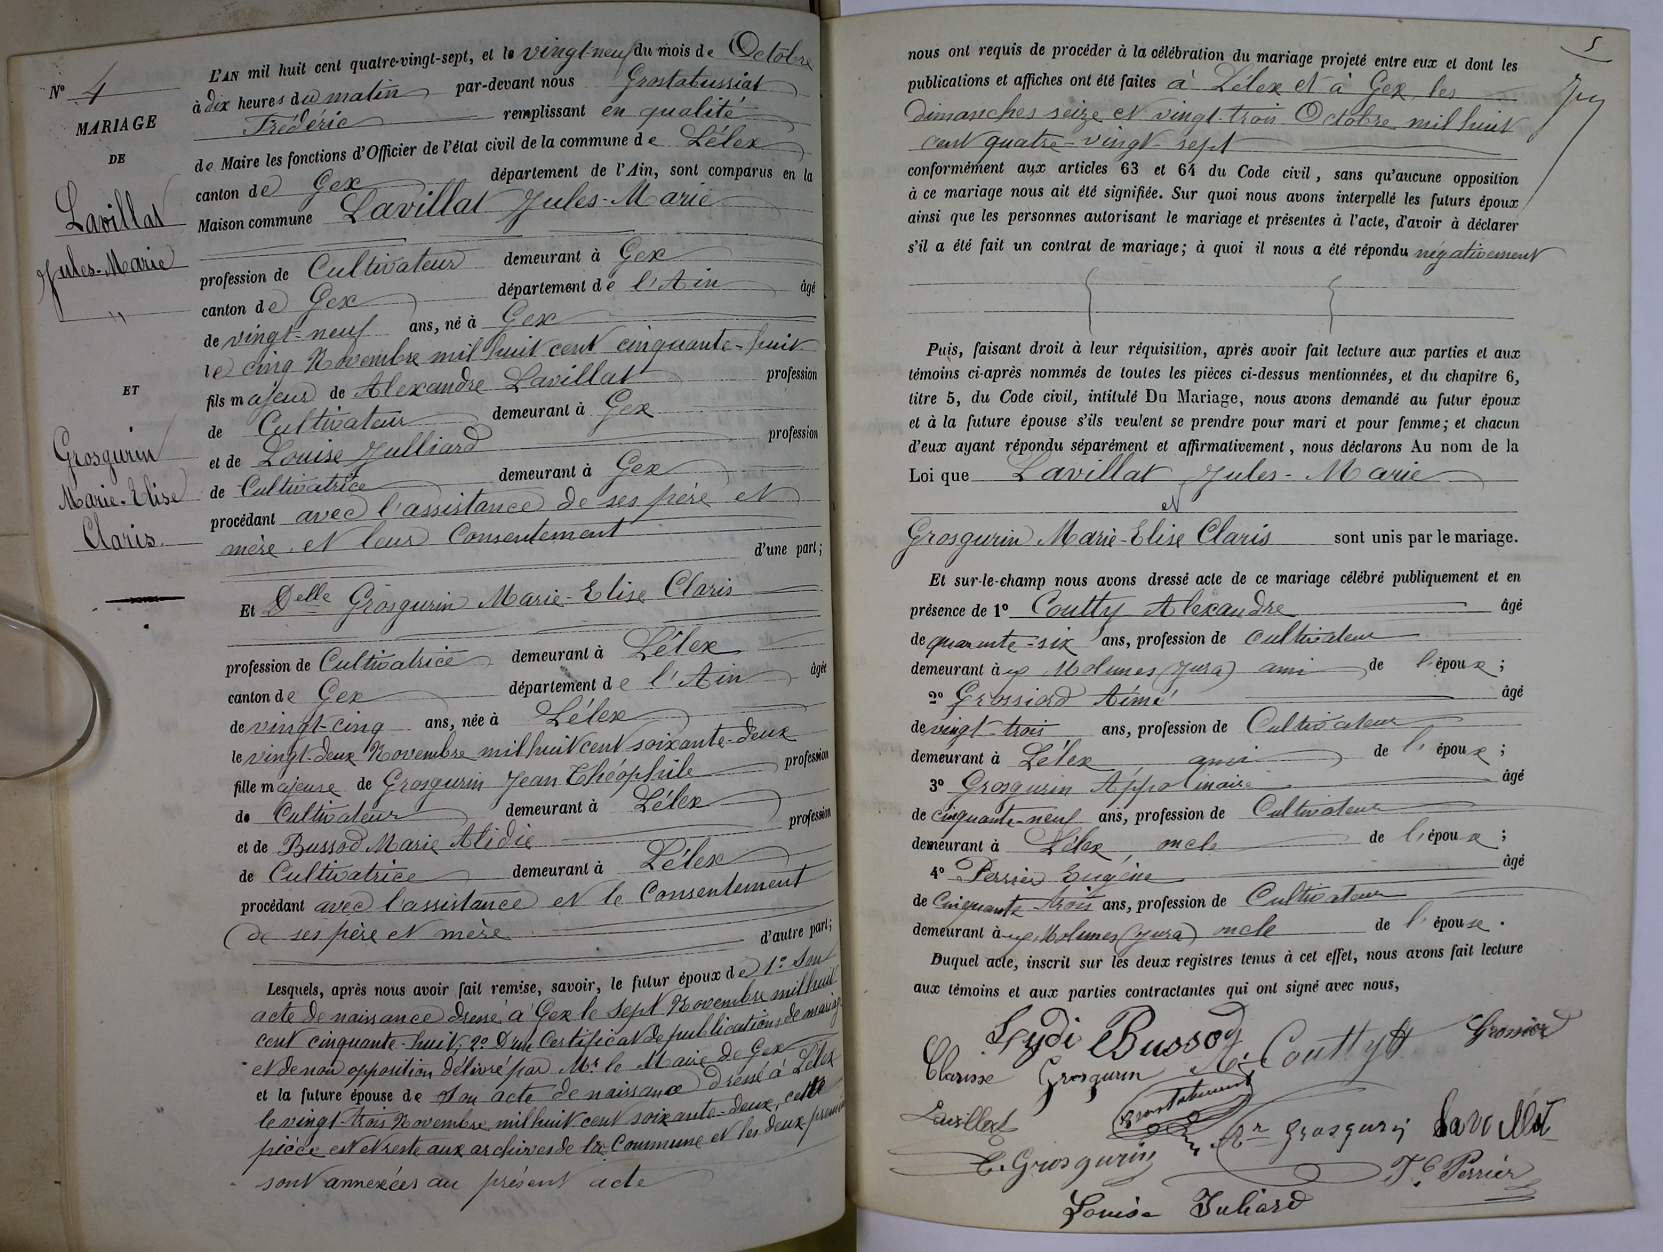 N° 4
MARIAGE
DE
Lavillat
Jules-Marie
"
ET
Grosgurin
Marie-Elise
Claris.
L'AN mil huit cent quatre-vingt-sept, et le vingt-neuf du mois de Octobre
à dix heures du matin par-devant nous Grostabussiat
Frédéric remplissant en qualité
de Maire les fonctions d'Officier de l'état civil de la commune de Lélex
canton de Gex département de l'Ain, sont comparus en la
Maison commune Lavillat Jules-Marie
profession de Cultivateur demeurant à Gex
canton de Gex département de l'Ain âgé
de vingt-neuf ans, né à Gex
le cinq Novembre mil huit cent cinquante-huit
fils majeur de Alexandre Lavillat profession
de Cultivateur demeurant à Gex
et de Louise Julliard profession
de Cultivatrice demeurant à Gex
procédant avec l'assistance de ses père et
mère et leur Consentement
d'une part;
Et Delle Grosgurin Marie-Elise Claris
profession de Cultivatrice demeurant à Lélex
canton de Gex département de l'Ain âgée
de vingt-cinq ans, née à Lélex
le vingt-deux Novembre mil huit cent soixante-deux
fille majeure de Grosgurin Jean Théophile profession
de Cultivateur demeurant à Lélex
et de Bussod Marie Alidie profession
de Cultivatrice demeurant à Lélex
procédant avec l'assistance et le Consentement
de ses père et mère
d'autre part;
Lesquels, après nous avoir fait remise, savoir, le futur époux de 1° Son
acte de naissance dressé à Gex le sept Novembre mil huit
cent cinquante-huit, 2° D'un Certificat de publications de mariage
et de non opposition délivré par Mr le Maire de Gex
et la future épouse de son acte de naissance dressé à Lélex
le vingt-trois Novembre mil huit cent soixante-deux, cette
pièce est et reste aux archives de la Commune et les deux premières
sont annexées au présent acte
5
nous ont requis de procéder à la célébration du mariage projeté entre eux et dont les
publications et affiches ont été faites à Lélex et à Gex, les
dimanches seize et vingt-trois Octobre mil huit
cent quatre-vingt-sept
conformément aux articles 63 et 64 du Code civil, sans qu'aucune opposition
à ce mariage nous ait été signifiée. Sur quoi nous avons interpellé les futurs époux
ainsi que les personnes autorisant le mariage et présentes à l'acte, d'avoir à déclarer
s'il a été fait un contrat de mariage; à quoi il nous a été répondu négativement
Puis, faisant droit à leur réquisition, après avoir fait lecture aux parties et aux
témoins ci-après nommés de toutes les pièces ci-dessus mentionnées, et du chapitre 6,
titre 5, du Code civil, intitulé Du Mariage, nous avons demandé au futur époux
et à la future épouse s'ils veulent se prendre pour mari et pour femme; et chacun
d'eux ayant répondu séparément et affirmativement, nous déclarons Au nom de la
Loi que Lavillat Jules-Marie
et
Grosgurin Marie-Elise Claris sont unis par le mariage.
Et sur-le-champ nous avons dressé acte de ce mariage célébré publiquement et en
présence de 1° Coutty Alexandre âgé
de quarante-six ans, profession de cultivateur
demeurant à Molunes (Jura) ami de l'époux;
2° Grossiord Aimé âgé
de vingt-trois ans, profession de Cultivateur
demeurant à Lélex, ami de l'époux;
3° Grosgurin Appolinaire âgé
de cinquante-neuf ans, profession de Cultivateur
demeurant à Lélex, oncle de l'époux;
4° Perrier Eugène âgé
de Cinquante-trois ans, profession de Cultivateur
demeurant à Molunes (Jura) oncle de l'épouse.
Duquel acte, inscrit sur les deux registres tenus à cet effet, nous avons fait lecture
aux témoins et aux parties contractantes qui ont signé avec nous,
Lydi Bussod A. Coutty Grossiord
Clarisse Grosgurin
Lavillat Grostabussiat Grosgurin Lavillat
C. Grosgurin Perrier
Louise Juliard